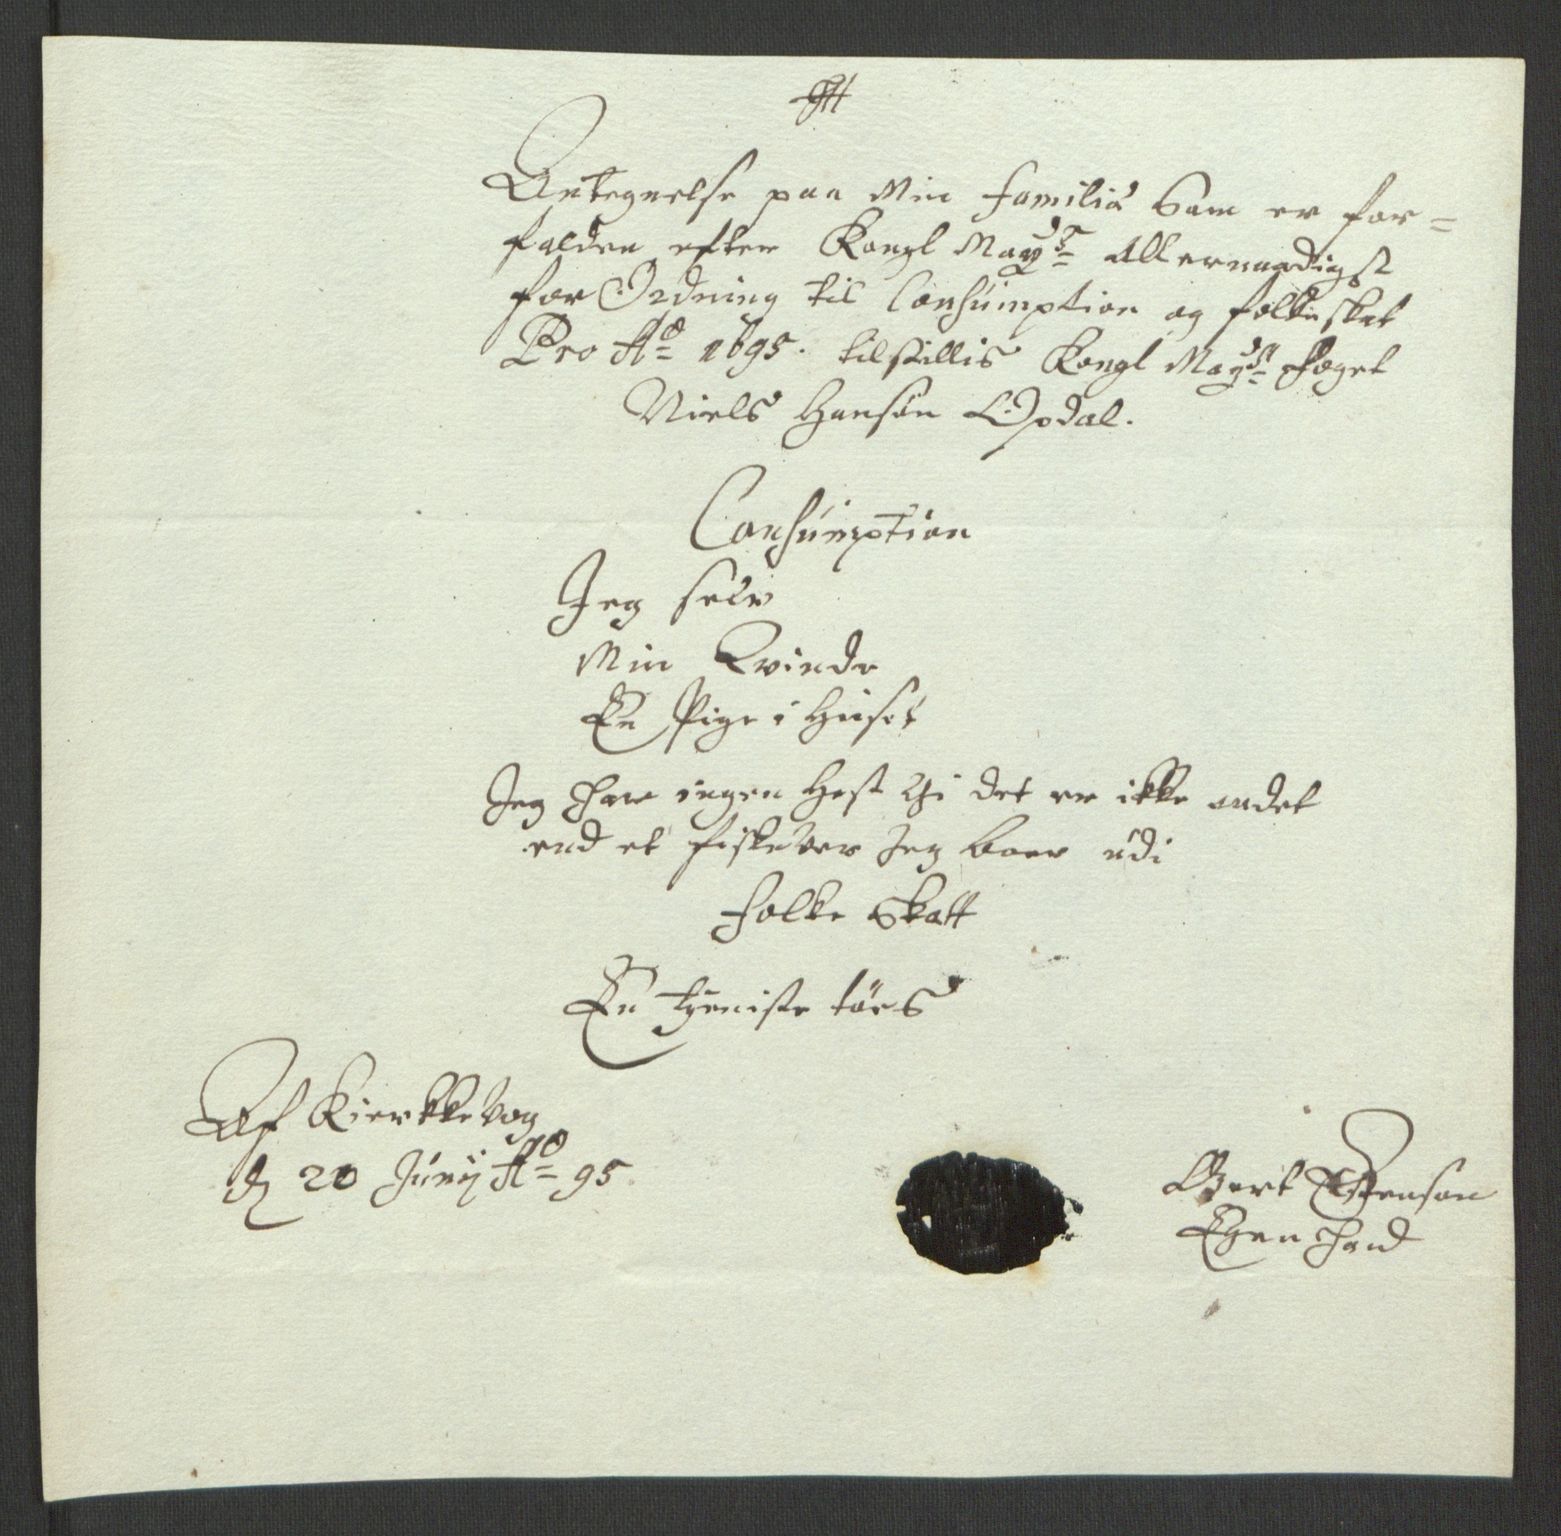 Antegnelse paa Min familiæ Som er for=
falden efter Kongl Mayts Allernaadigst
for Ordning til Consumption og folkeskat
Pro Ao 1695. tilstillis Kongl Mayts foget
Niels Hansøn Opdal.
Consumption
Jeg selv
Min Qvinde
En Pige i Huset
Jeg Har ingen Hest thi det er ikke andet
end et fiskever Jeg boer udi
Folke Skatt
En tjeniste töes
Af Kierkkevog
d 20 Junij Ao 95
Giert
Egen Hand